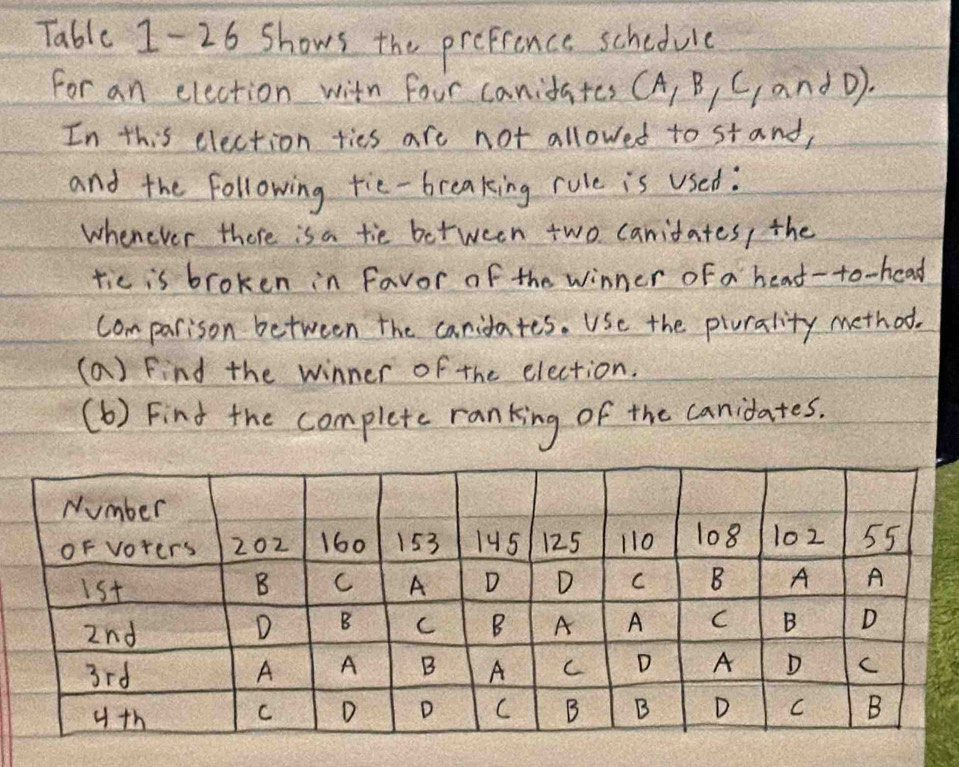 Table 1-26 Shows the prefrence schedule
for an election with four canidates (A, B, C, and D).
In this election ties are not allowed to stand,
and the following tie-breaking rule is used:
whenever there is a tie between two canidates, the
tie is broken in favor of the winner of a head-to-head
comparison between the canidates. Use the plurality method.
(a) Find the winner of the election.
(b) Find the complete ranking of the canidates.
Number
of voters 202 160 153 145 125 110 108 102 55
1st B C A D D C B A A
2nd D B C B A A C B D
3rd A A B A C D A D C
4th C D D C B B D C B